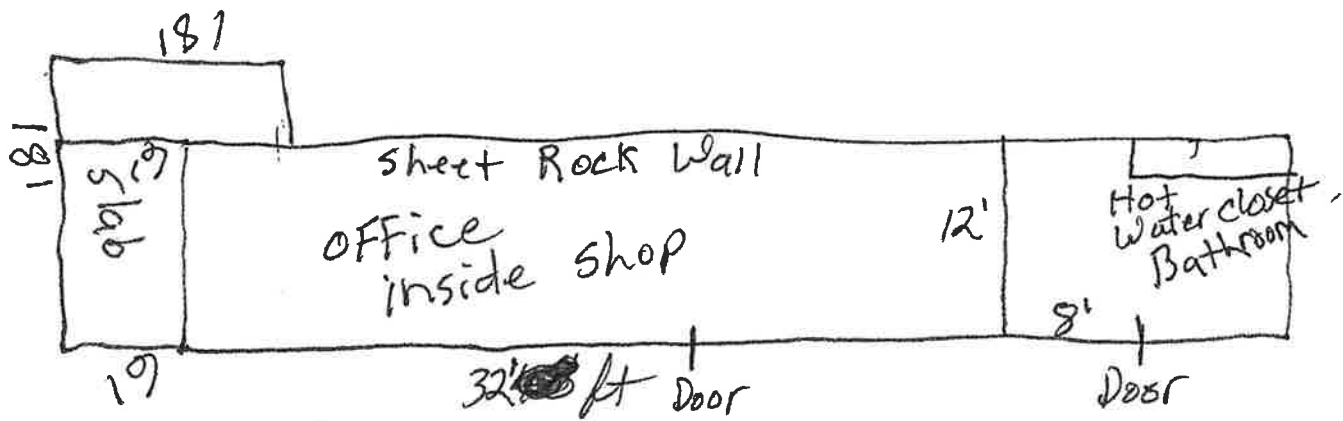 18'
18'
6'
slab
Sheet Rock Wall
office
inside shop
12'
Hot
Water closet,
Bathroom
8'
6'
32' ft
Door
Door